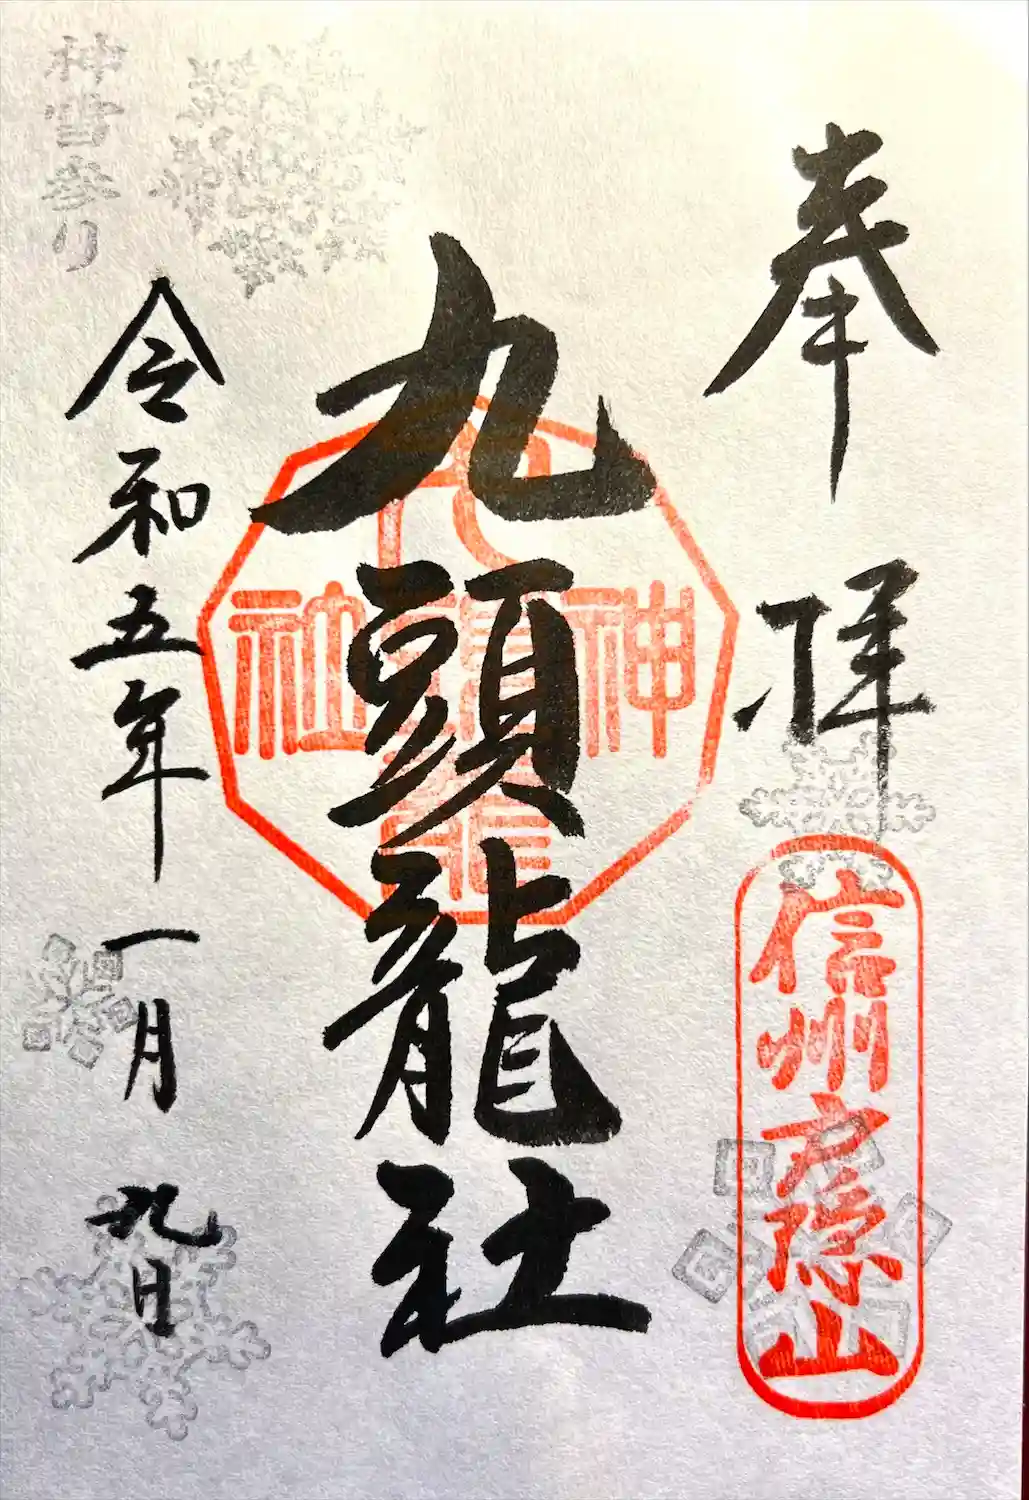 奉拝
信州戸隠山
九頭龍社
神社
令和五年一月九日
神雪参り